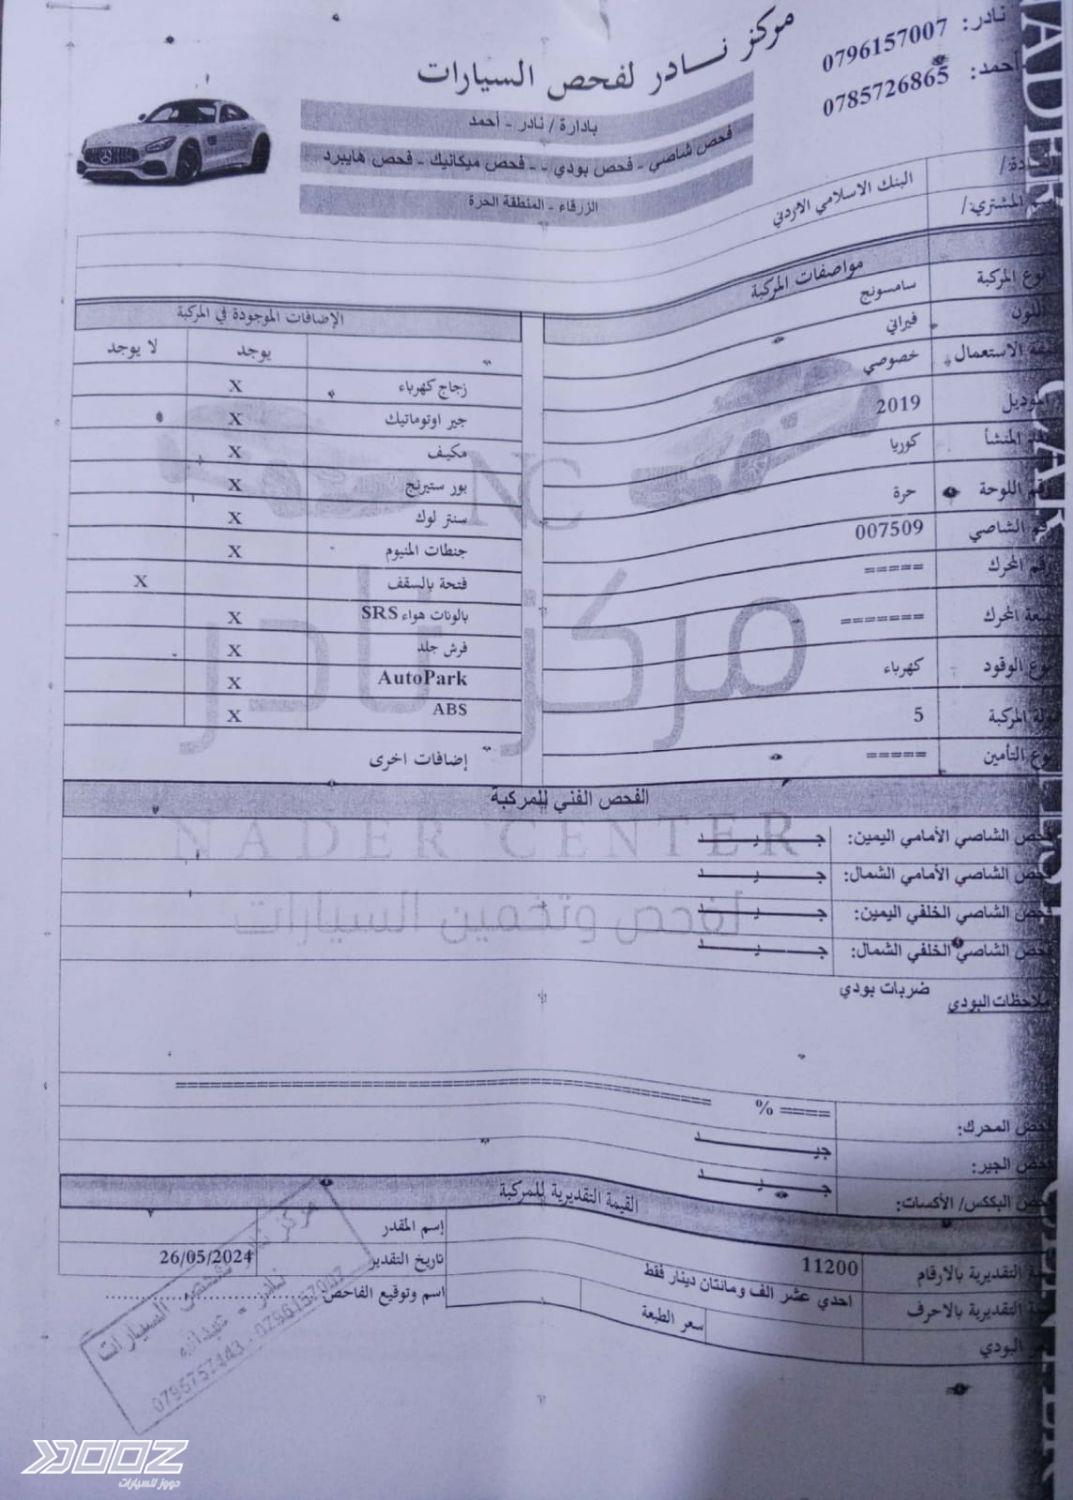 مركز نادر لفحص السيارات
نادر: 0796157007
أحمد: 0785726865
بادارة / نادر - أحمد
فحص شاصي - فحص بودي - - فحص ميكانيك - فحص هايبرد
الزرقاء - المنطقة الحرة
البنك الاسلامي الاردني
المشتري:/
مواصفات المركبة
نوع المركبة سامسونج
اللون فيراني
الاستعمال خصوصي
الموديل 2019
المنشأ كوريا
رقم اللوحة حرة
رقم الشاصي 007509
رقم المحرك =====
سعة المحرك =======
نوع الوقود كهرباء
المركبة 5
نوع التأمين =====
الإضافات الموجودة في المركبة
يوجد لا يوجد
زجاج كهرباء X
جير اوتوماتيك X
مكيف X
بور ستيرنج X
سنتر لوك X
جنطات المنيوم X
فتحة بالسقف X
بالونات هواء SRS X
فرش جلد X
AutoPark X
ABS X
إضافات اخرى
NC
مركز نادر
NADER CENTER
لفحص وتخمين السيارات
الفحص الفني للمركبة
فحص الشاصي الأمامي اليمين: جـــيـــد
فحص الشاصي الأمامي الشمال: جـــيـــد
فحص الشاصي الخلفي اليمين: جـــيـــد
فحص الشاصي الخلفي الشمال: جـــيـــد
ملاحظات البودي ضربات بودي
فحص المحرك: ==== %
فحص الجير: جيـــــد
فحص البككس/ الأكسات: جـــيـــد
القيمة التقديرية للمركبة
التقديرية بالارقام 11200
التقديرية بالاحرف احدي عشر الف ومائتان دينار فقط
البودي
سعر الطبعة
إسم المقدر
تاريخ التقدير 26/05/2024
اسم وتوقيع الفاحص
مركز نادر لفحص السيارات
0796157007
DOOZ
دووز للسيارات